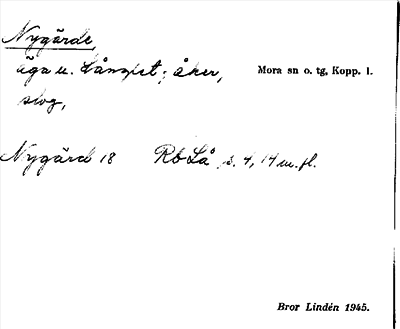 Nygärde,
äga u. Långlet; åker, Mora sn o. tg, Kopp. l.
slog,
Nygärd 18 Rb Lå s. 4, 14 m. fl.
Bror Lindén 1945.